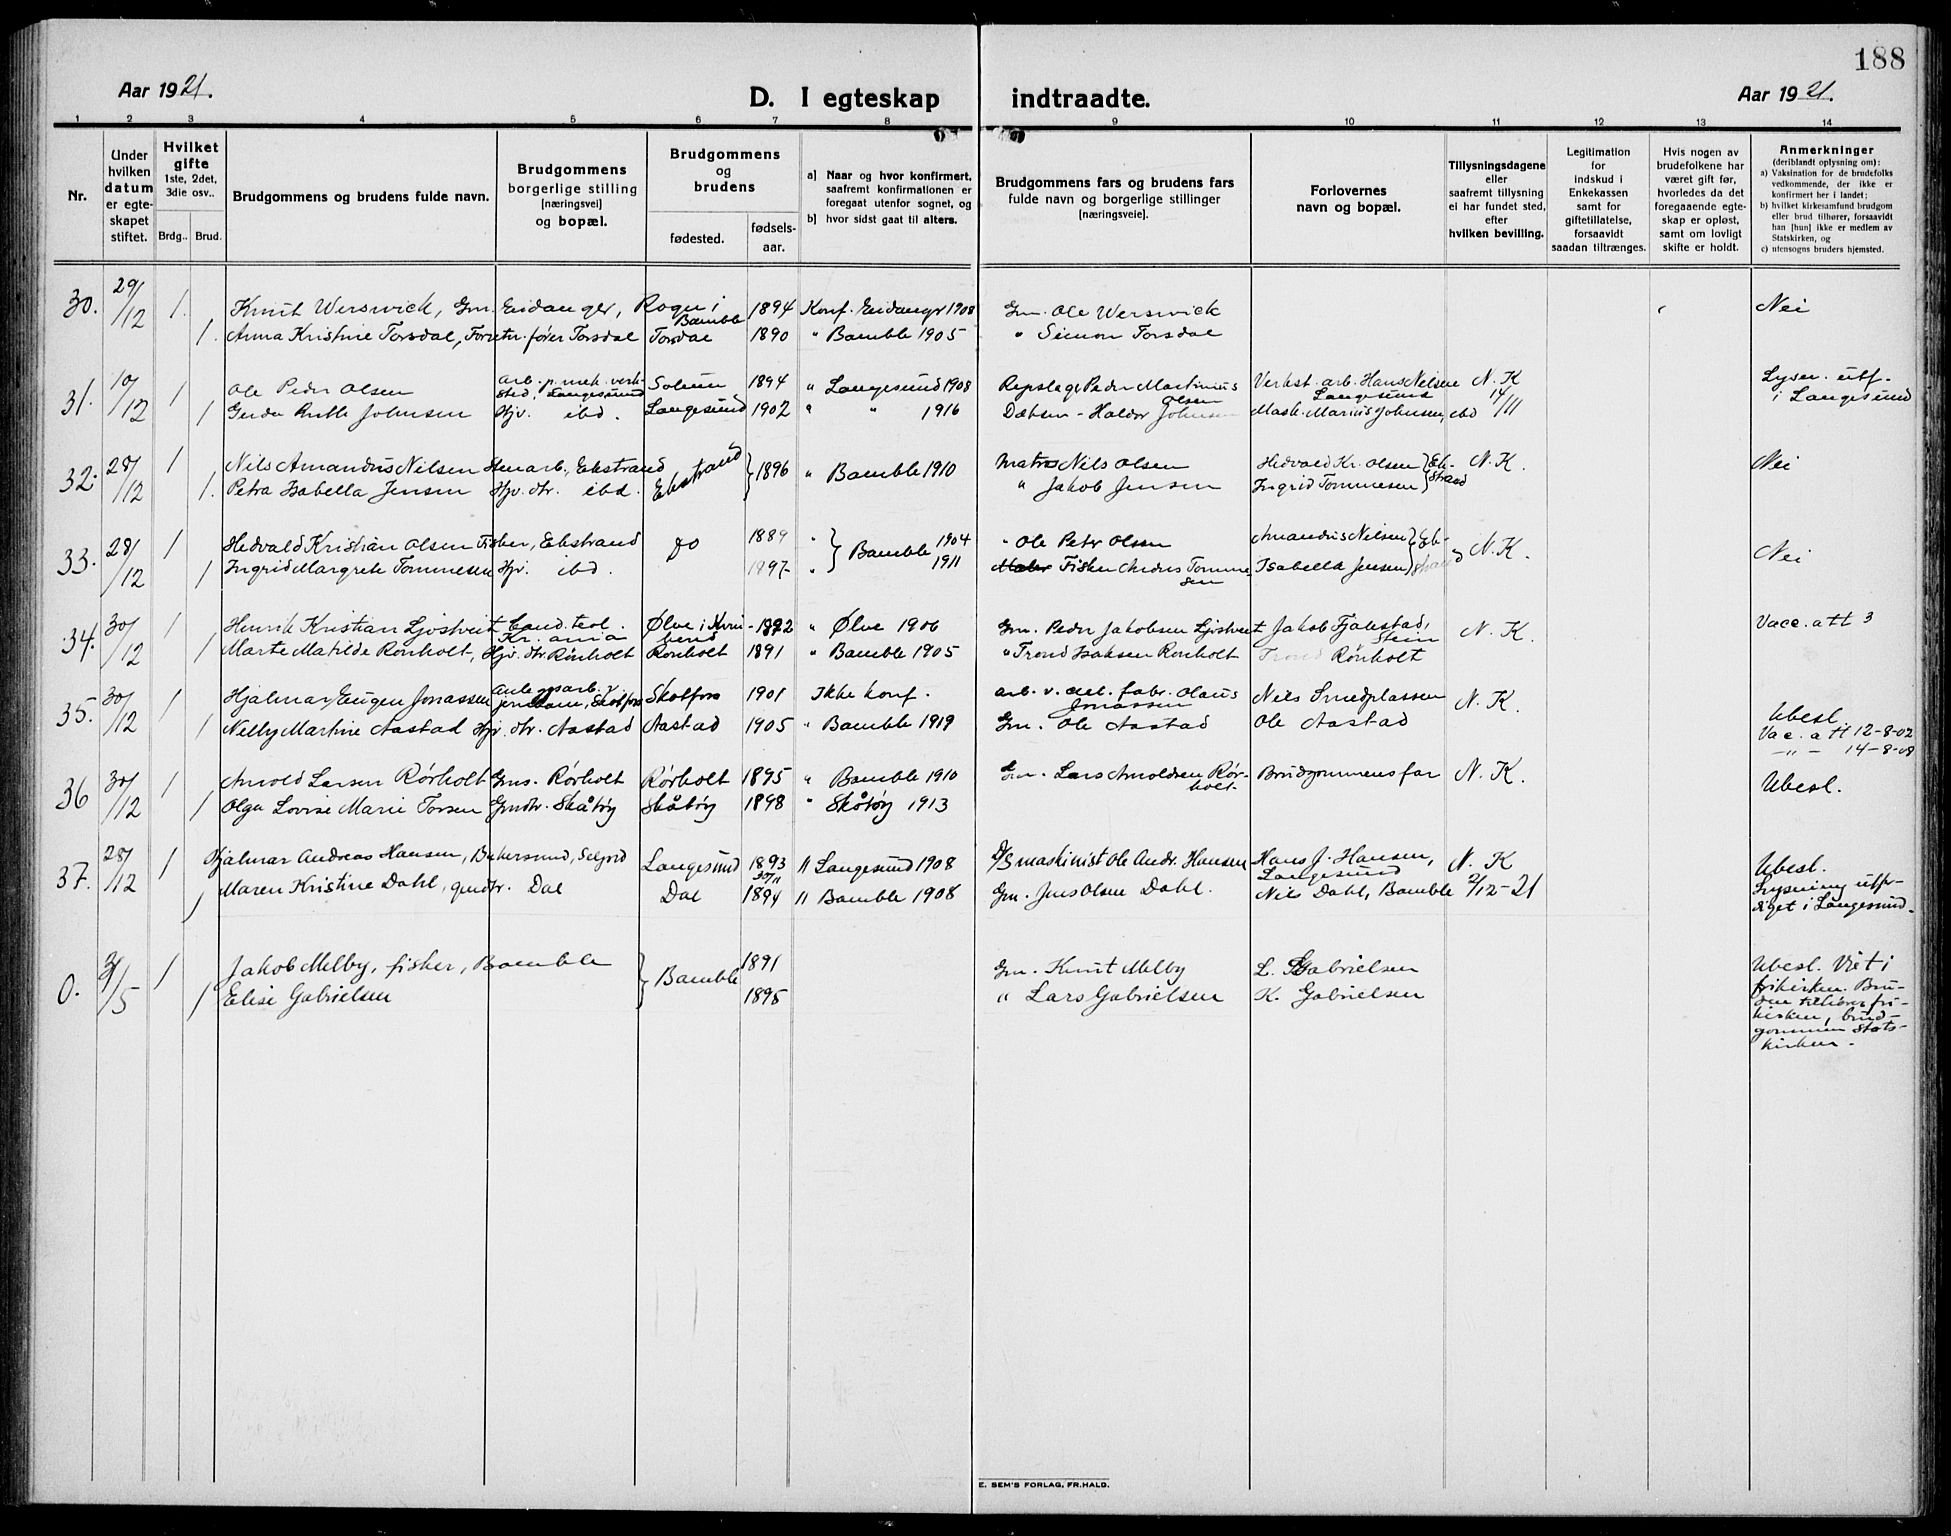 188
Aar 1921.
D. I egteskap indtraadte.
Aar 1921.
1 2 3 4 5 6 7 8 9 10 11 12 13 14
Nr.
Under
hvilken
datum
er egte-
skapet
stiftet.
Hvilket
gifte
1ste, 2det,
3die osv..
Brdg.. Brud.
Brudgommens og brudens fulde navn.
Brudgommens
borgerlige stilling
[næringsvei]
og bopæl.
Brudgommens
og
brudens
fødested.
fødsels-
aar.
a) Naar og hvor konfirmert,
saafremt konfirmationen er
foregaat utenfor sognet, og
b) hvor sidst gaat til alters.
Brudgommens fars og brudens fars
fulde navn og borgerlige stillinger
[næringsveie].
Forlovernes
navn og bopæl.
Tillysningsdagene
eller
saafremt tillysning
ei har fundet sted,
efter
hvilken bevilling.
Legitimation
for
indskud i
Enkekassen
samt for
giftetillatelse,
forsaavidt
saadan tiltrænges.
Hvis nogen av
brudefolkene har
været gift før,
hvorledes da det
foregaaende egte-
skap er opløst,
samt om lovligt
skifte er holdt.
Anmerkninger
(deriblandt oplysning om):
a) Vaksination for de brudefolks
vedkommende, der ikke er
konfirmert her i landet;
b) hvilket kirkesamfund brudgom
eller brud tilhører, forsaavidt
han [hun] ikke er medlem av
Statskirken, og
c) utensogns bruders hjemsted.
30. 29/12 1. Knut Werswick, Gm. Eidanger, Rogn i Bamble 1894 Konf. Eidanger 1908 Gm. Ole Werswick Nei
1. Anna Kristine Torsdal, Torsdal Torsdal 1890 " Bamble 1905 " Simon Torsdal
31. 10/12 1 Ole Peder Olsen arb. p. mek. verk-sted, Langesund Solum 1894 " Langesund 1908 Repslager Peder Martinius Olsen Verkst. arb. Hans Nilsen Langesund N. K 14/11 Lysn. utf. i Langesund
1 Gerda Ruth Johnsen Hjv. ibd. Langesund 1902 " " 1916 Halvor Johnsen Mask. Marius Johnsen, ibd
32. 28/12 1 Nils Amandus Nilsen Ekstrand Ekstrand } 1896 " Bamble 1910 Matros Nils Olsen Hedvald Kr. Olsen } Ek-strand N. K. Nei
1. Petra Isabella Jensen Hjv. dtr. ibd. " Jakob Jensen Ingrid Tommesen
33. 28/12 1 Hedvald Kristian Olsen Fisker, Ekstrand do 1889 " } Bamble 1904 " Ole Peter Olsen Amandus Nilsen } Ek-strand N. K. Nei
1 Ingrid Margrete Tommesen Hjv. ibd. 1897 " 1911 Fisker Tomme-sen Isabella Jensen
34. 30/12 1 Henrik Kristian Ljostveit Cand. teol. Kr.ania Ølve i Kvin-herad 1892 " Ølve 1906 Gm. Peder Jakobsen Ljostveit Jakob Fjalestad, Stein N. K. Vacc. att 3
1 Marte Matilde Rønholt, Hjv. dtr. Rønholt Rønholt 1891 " Bamble 1905 " Trond Isaksen Rønholt Trond Rønholt
35. 30/12 1 Hjalmar Eugen Jonassen Anlegsarb. v. Skotfos Skotfos 1901 Ikke konf. arb. v. fabr. Olaus Jonassen Nils Smedplassen N. K.
1 Nelly Martine Aastad Hjv. dtr. Aastad Aastad 1905 " Bamble 1919 Gm. Ole Aastad Ole Aastad Ubesl. Vac. att 12-8-02
-"- 14-8-08
36 30/12 1 Arnold Larsen Rørholt Gms. Rørholt Rørholt 1895 " Bamble 1910 Gm. Lars Arnoldsen Rør-holt Brudgommens far N. K. Ubesl.
1 Olga Lovise Marie Torsen Gmdtr. Skåtøy Skåtøy 1898 " Skåtøy 1913
37. 28/12 1 Hjalmar Andreas Hansen, Seljord Langesund 1893 " Langesund 1908 D/S maskinist Ole Andr. Hansen Hans J. Hansen, Langesund N. K 2/12-21 Ubesl.
Lysning utfer-
diget i Langesund.
1 Maren Kristine Dahl, gmdtr. Dal Dal 1894 " Bamble 1908 Gm. Jens Olsen Dahl. Nils Dahl, Bamble
0. /5 1 Jakob Melby, fisker, Bamble } Bamble 1891 Gm. Knut Melby L. Gabrielsen Ubesl. Viet i
frikirken. Bru-
den tilhører fri-
kirken, brud-
gommen Stats-
kirken.
1 Elise Gabrielsen 1895 " Lars Gabrielsen K. Gabrielsen
E. SEM'S FORLAG, FR.HALD.